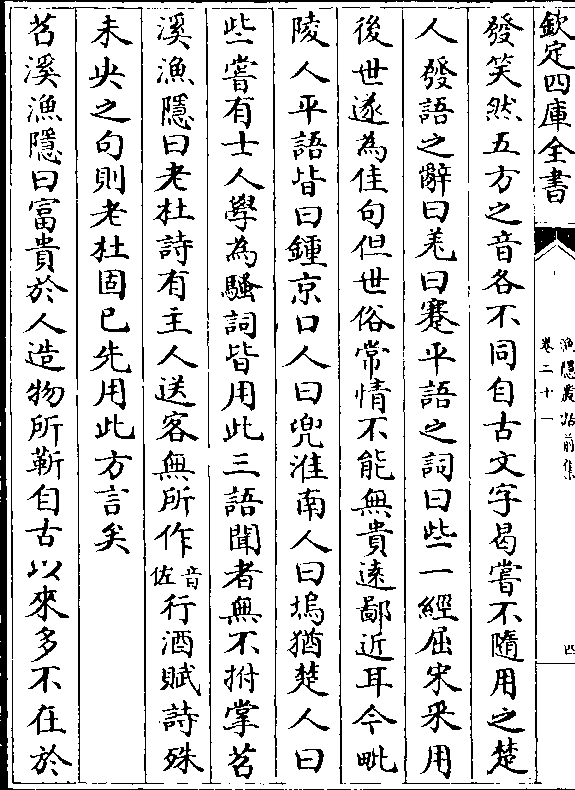 欽定四庫全書
漁隱叢話前集
卷二十一
四
發笑然五方之音各不同自古文字曷嘗不隨用之楚
人發語之辭曰羌曰蹇平語之詞曰些一經屈宋采用
後世遂為佳句但世俗常情不能無貴逺鄙近耳今毗
陵人平語皆曰鍾京口人曰兜淮南人曰塢猶楚人曰
些嘗有士人學為騷詞皆用此三語聞者無不拊掌苕
溪漁隱曰老杜詩有主人送客無所作音佐行酒賦詩殊
未央之句則老杜固已先用此方言矣
苕溪漁隱曰富貴於人造物所靳自古以來多不在於